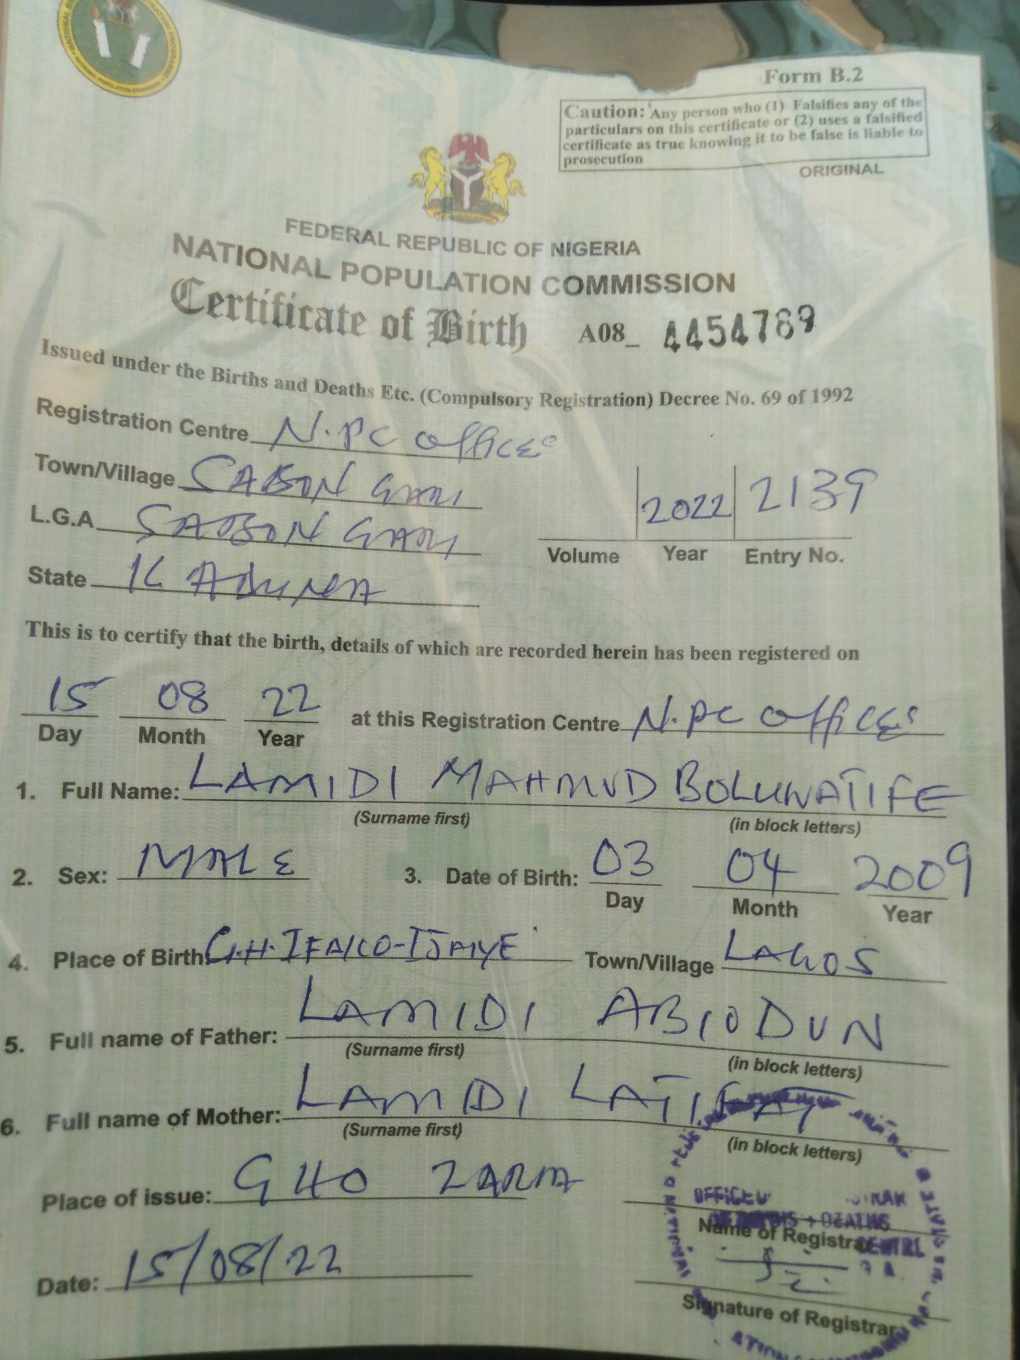 Form B.2
Caution: Any person who (1) Falsifies any of the
particulars on this certificate or (2) uses a falsified
certificate as true knowing it to be false is liable to
prosecution
ORIGINAL
FEDERAL REPUBLIC OF NIGERIA
NATIONAL POPULATION COMMISSION
Certificate of Birth A08_ 4454769
Issued under the Births and Deaths Etc. (Compulsory Registration) Decree No. 69 of 1992
Registration Centre N.PC office
Town/Village SABON GARI
L.G.A SABON GARI
2022 2139
Volume Year Entry No.
State KADUNA
This is to certify that the birth, details of which are recorded herein has been registered on
15 08 22 at this Registration Centre N.PC office
Day Month Year
1. Full Name: LAMIDI MAHMUD BOLUWATIFE
(Surname first) (in block letters)
2. Sex: MALE 3. Date of Birth: 03 04 2009
Day Month Year
4. Place of Birth G.H. IFAKO-IJAIYE Town/Village LAGOS
5. Full name of Father: LAMIDI ABIODUN
(Surname first) (in block letters)
6. Full name of Mother: LAMIDI LATIFAT
(Surname first) (in block letters)
Place of issue: GHO ZARIA
Name of Registrar
Date: 15/08/22
Signature of Registrar